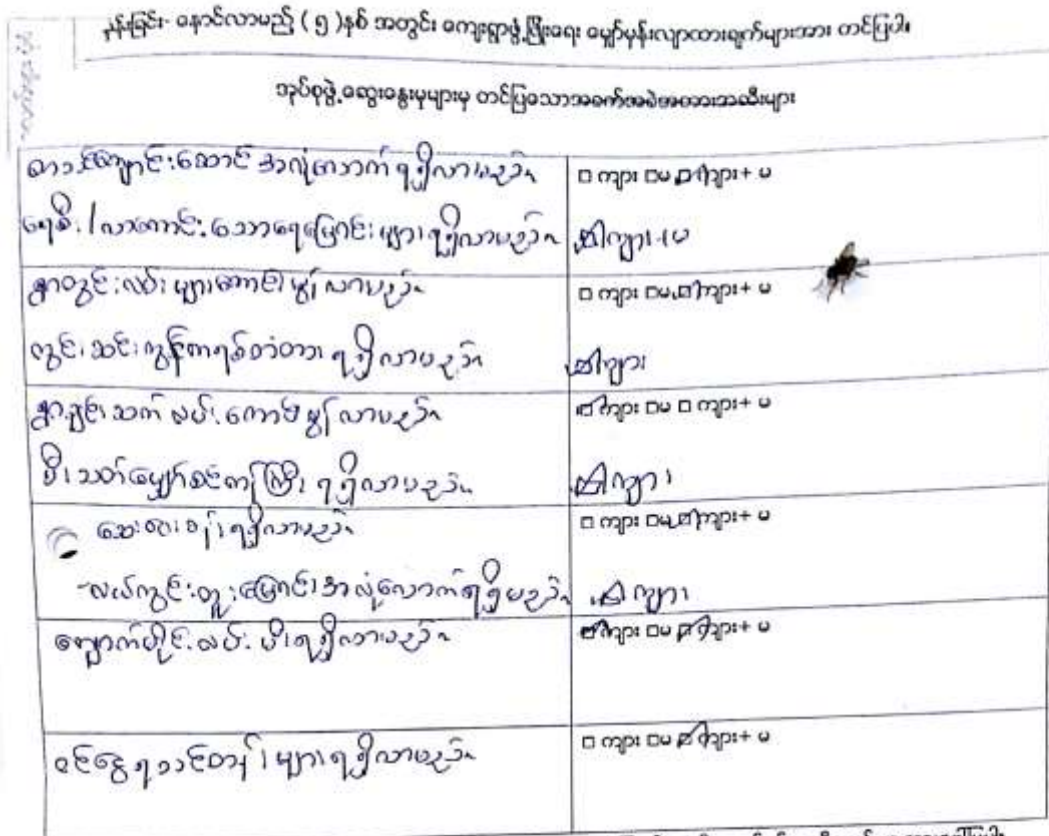 မှန်းခြင်း- နောင်လာမည့် ( ၅ )နှစ် အတွင်း ကျေးရွာဖွံ့ဖြိုးရေး မျှော်မှန်းလျာထားချက်များအား တင်ပြပါ။
အုပ်စုဖွဲ့ဆွေးနွေးမှုများမှ တင်ပြသောအခက်အခဲအထားအဆီးများ
စာသင်ကျောင်းဆောင် အလုံလောက် ရရှိလာမည်။
□ ကျား □မ □ ကျား+ မ
ရေစီး/လာကောင်းသောရေမြောင်းများ ရရှိလာမည်။
ကျား+မ
ရွာတွင်းလမ်းများကောင်းမွန်လာမည်။
□ ကျား □မ □ ကျား+ မ
ကွင်းဆင်းကွန်ကရစ်တံတား ရရှိလာမည်။
ကျား
ရွာချင်းဆက်လမ်းကောင်းမွန်လာမည်။
□ ကျား □မ □ ကျား+ မ
မီးသတ်မျှော်စင်ကြီး ရရှိလာမည်။
ကျား
ဆေးပေးခန်းရရှိလာမည်။
□ ကျား □မ □ ကျား+ မ
-လယ်ကွင်းတူးမြောင်းအလုံလောက်ရရှိမည်။
ကျား
ကျောက်မိုင်းလမ်းမီးရရှိလာမည်။
□ ကျား □မ □ ကျား+ မ
ဝင်ငွေရသင်တန်းများရရှိလာမည်။
□ ကျား □မ □ ကျား+ မ